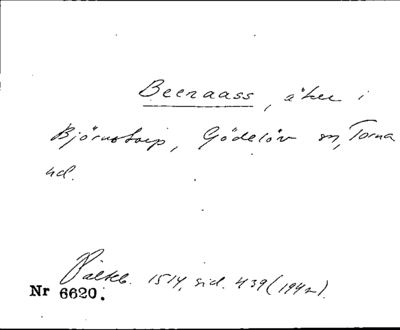 Beeraass, åker i
Björnstorp, Gödelöv sn, Torna
hd.
Pålkb. 1514, sid. 439 (1942).
Nr 6620.